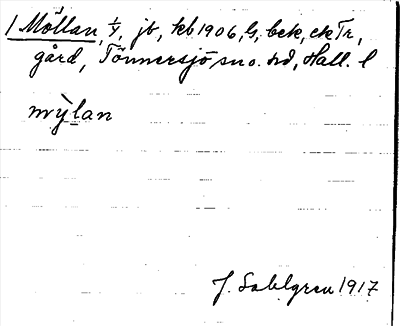 1 Möllan, 1/4, jb, kb 1906, G, bek, ek Tr,
gård, Tönnersjö sn o. hd, Hall. l
mỳlan
J. Sahlgren 1917